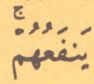 يَنفَعُهُمْۚ